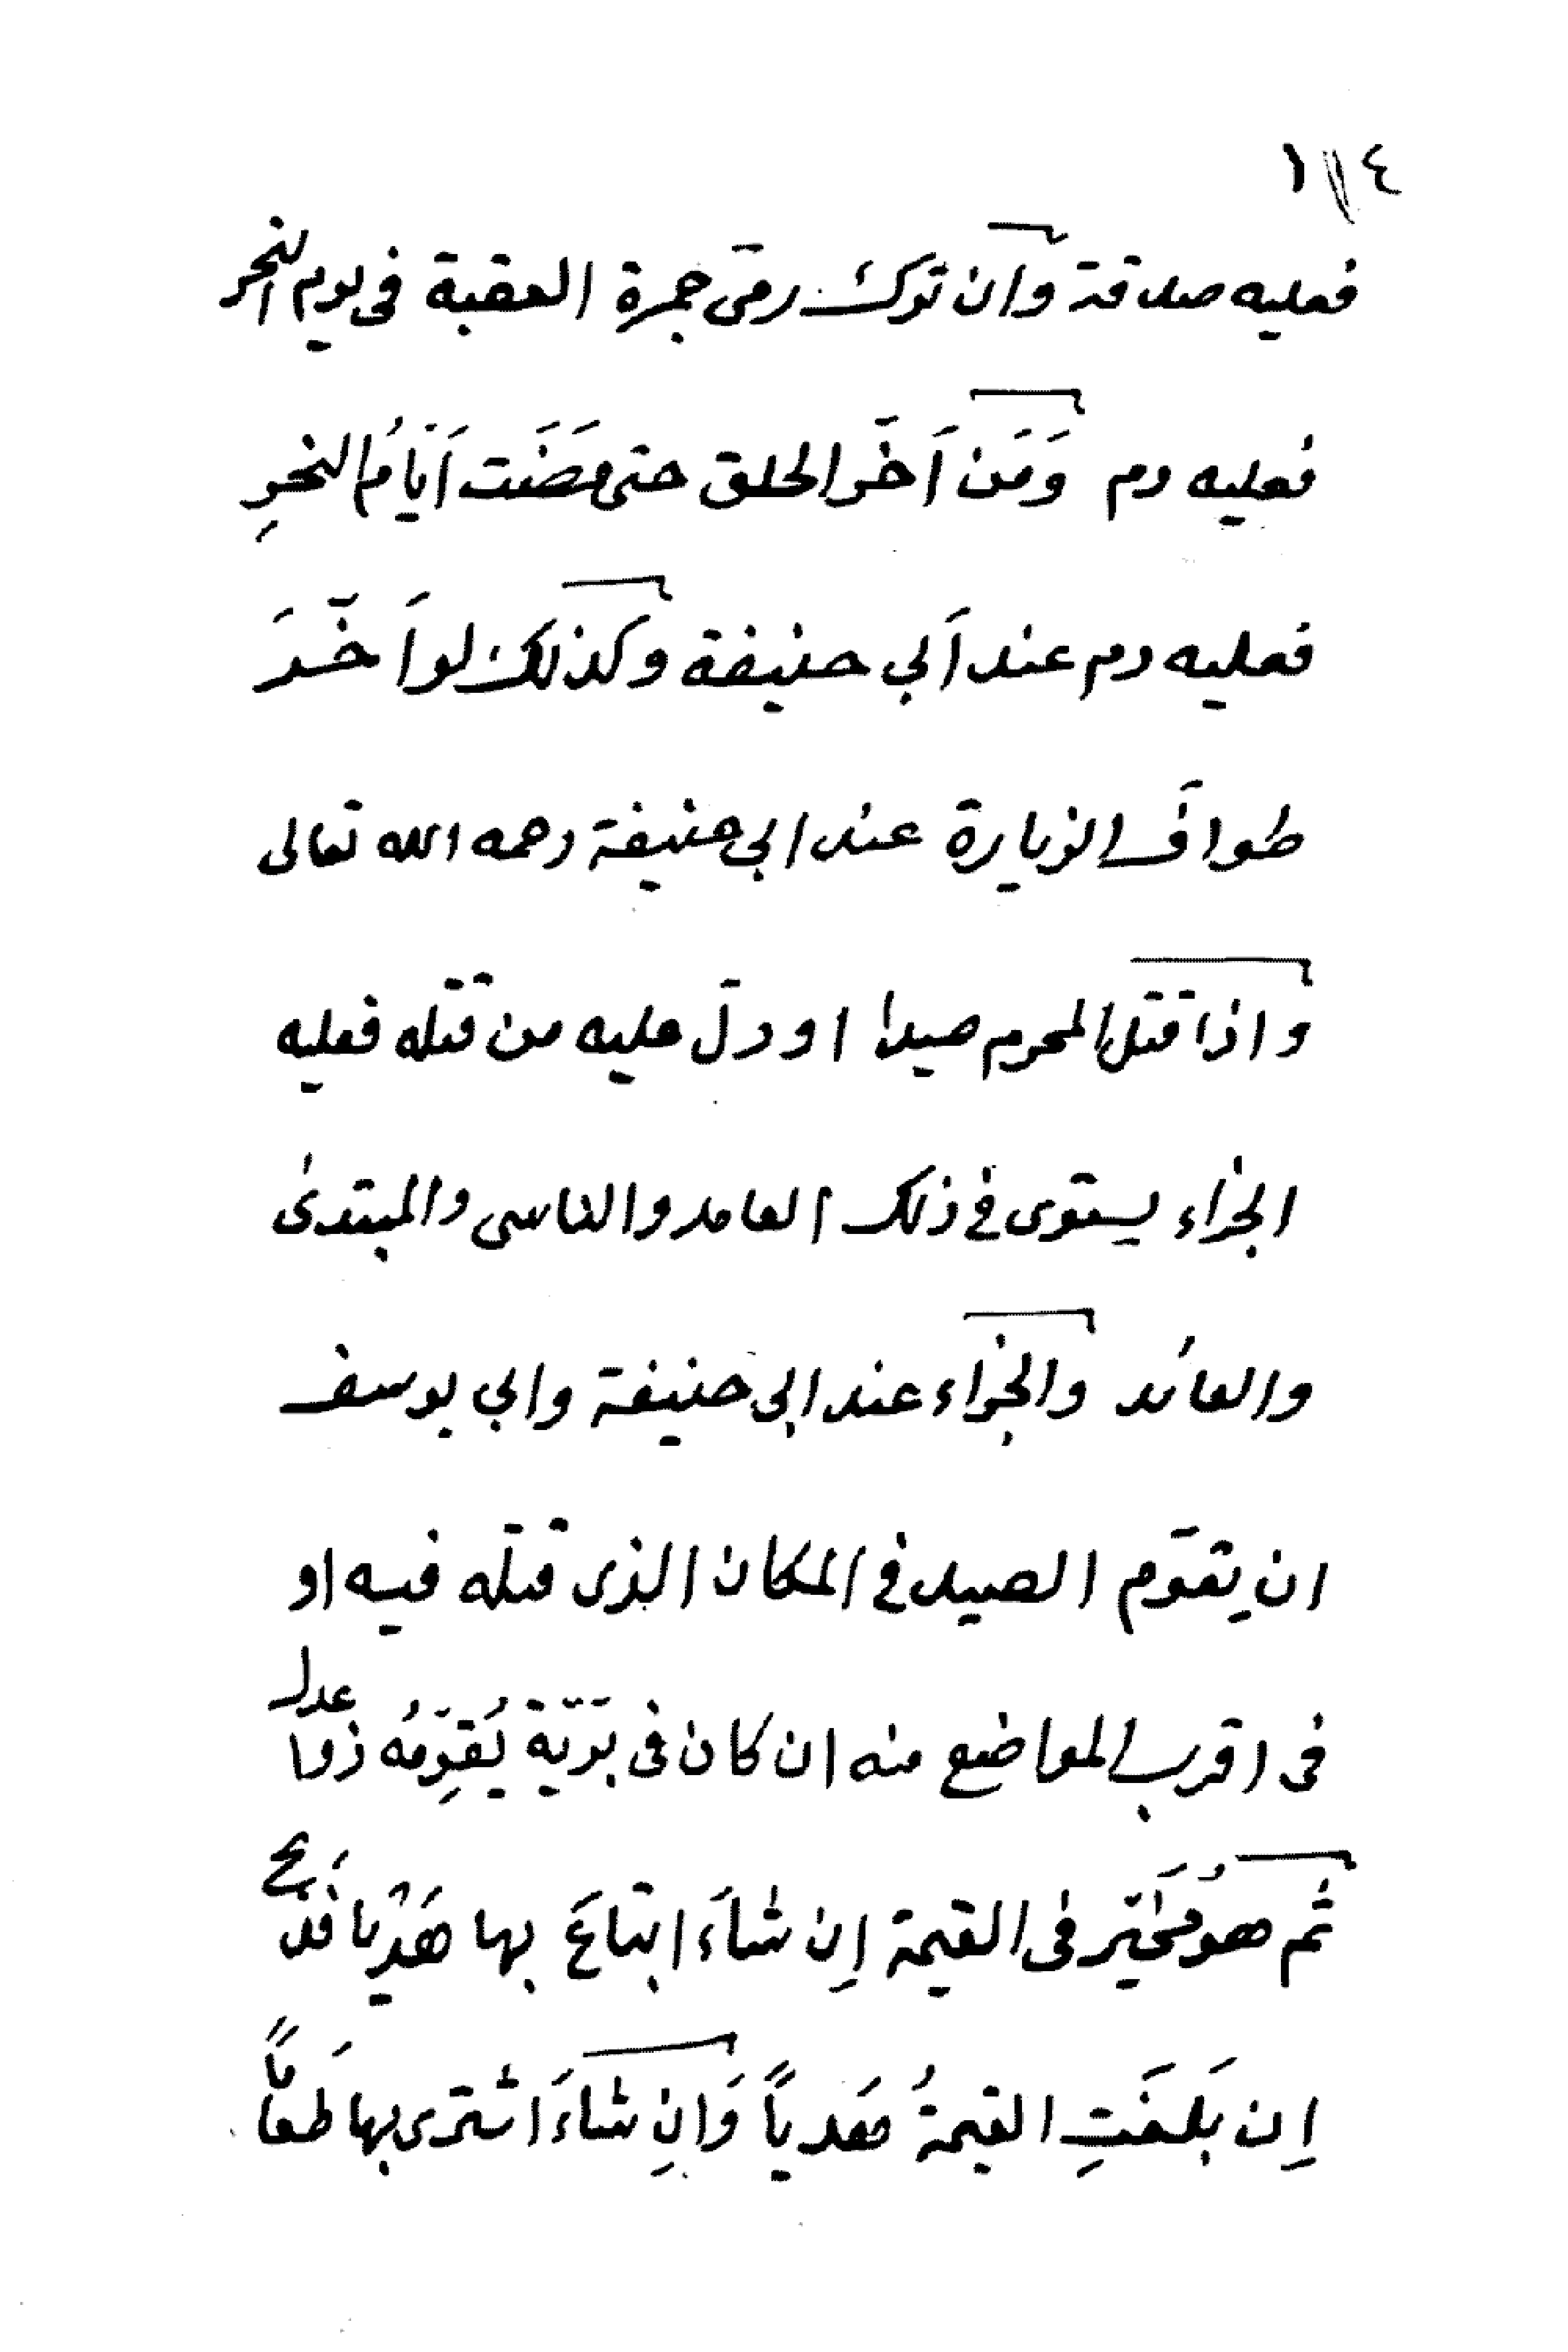 ١١٤
فعليه صدقة وان ترك رمى جمرة العقبة فى يوم النحر
فعليه دم وَمَن اَخَّر الحلق حتى مَضَت اَيَّامُ النحرِ
فعليه دم عند اَبي حنيفة وكذلك لو اَخَّرَ
طوافَ الزيارة عند ابى حنيفة رحمه الله تعالى
واذا قتل المحرم صيدا او دلّ عليه من قتله فعليه
الجزاء يستوى في ذلك العامد والناسى والمبتدئ
والعائد والجزاء عند ابى حنيفة وابي يوسف
ان يقوّم الصيد في المكان الذى قتله فيه او
فى اقرب المواضع منه ان كان فى بَرّيّة يُقوِّمُه ذوا عدل
ثم هوُ مخَيّر فى القيمة اِن شاَءَ ابتاعَ بها هَدْيا فذبح
اِن بَلَغَتِ القيمةُ هَدياً وَانِ شاءَ اشترى بها طَعاماً